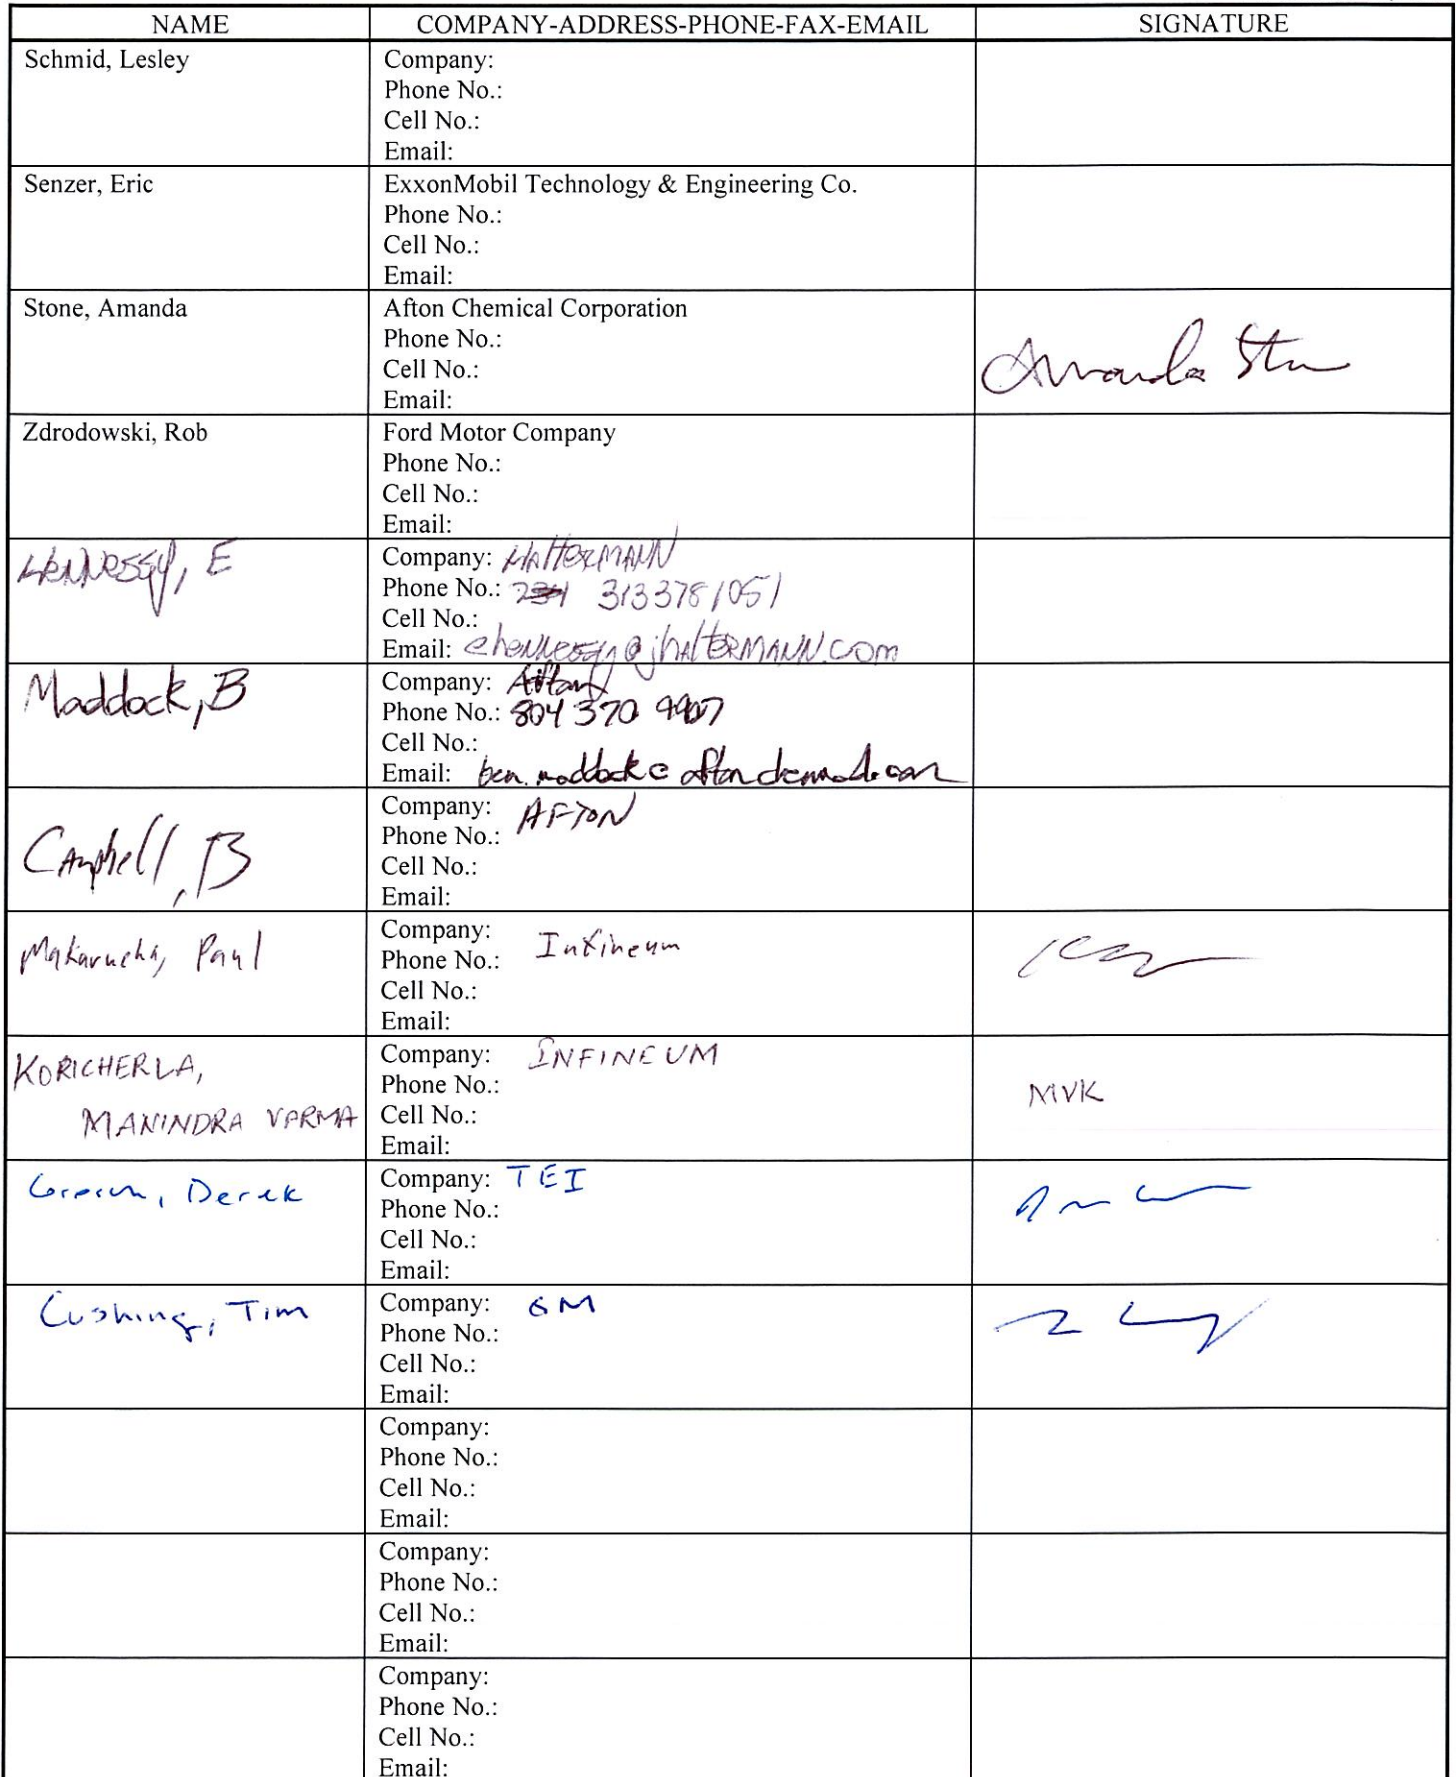 NAME COMPANY-ADDRESS-PHONE-FAX-EMAIL SIGNATURE
Schmid, Lesley
Company:
Phone No.:
Cell No.:
Email:
Senzer, Eric
ExxonMobil Technology & Engineering Co.
Phone No.:
Cell No.:
Email:
Stone, Amanda
Afton Chemical Corporation
Phone No.:
Cell No.:
Email:
Amanda
Zdrodowski, Rob
Ford Motor Company
Phone No.:
Cell No.:
Email:
HENNESSY, E
Company: HALTERMANN
Phone No.: 3133781051
Cell No.:
Email: ehennessy@jhaltERMANN.com
Maddock, B
Company: Afton
Phone No.: 804 370 9907
Cell No.:
Email:
Campbell, B
Company: AFTON
Phone No.:
Cell No.:
Email:
Makarucha, Paul
Company: Infineum
Phone No.:
Cell No.:
Email:
KORICHERLA,
MANINDRA VARMA
Company: INFINEUM
Phone No.:
Cell No.:
Email:
MVK
Derek
Company: TEI
Phone No.:
Cell No.:
Email:
Cushing, Tim
Company: GM
Phone No.:
Cell No.:
Email:
Company:
Phone No.:
Cell No.:
Email:
Company:
Phone No.:
Cell No.:
Email:
Company:
Phone No.:
Cell No.:
Email: